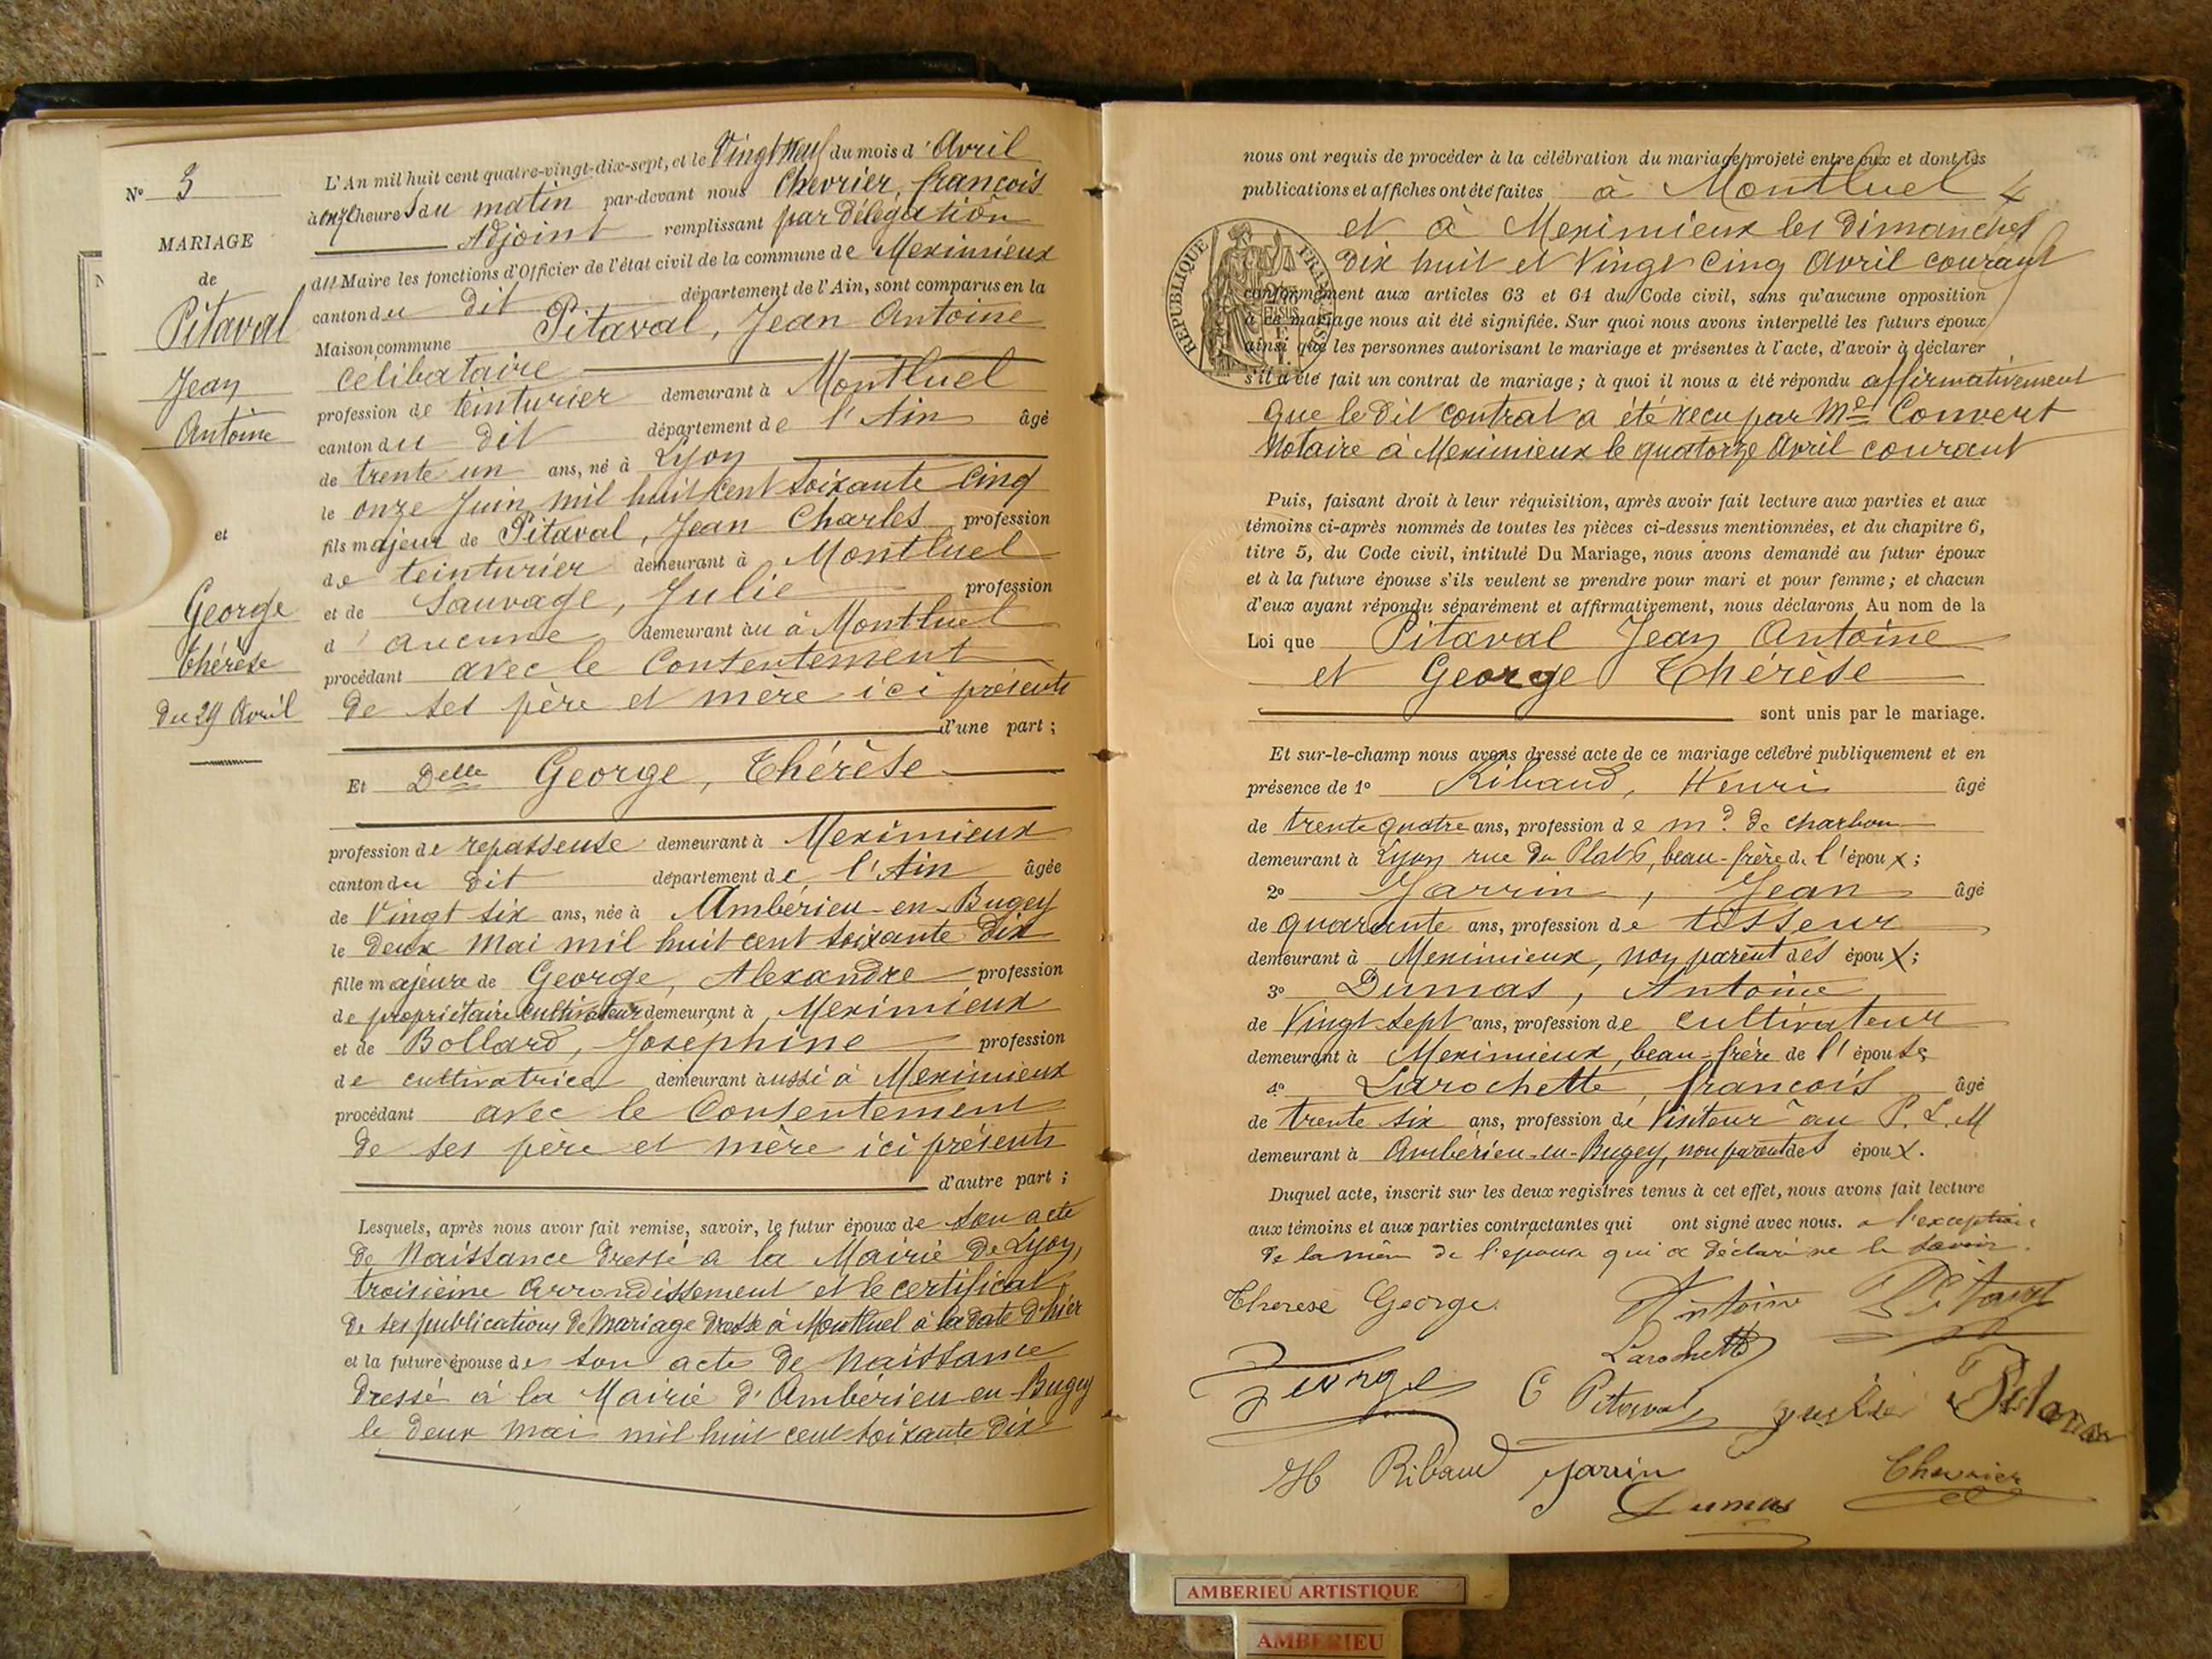 N° 3
MARIAGE
de
Pitaval
Jean
Antoine
et
George
Thérèse
du 29 Avril
L'An mil huit cent quatre-vingt-dix-sept, et le Vingt neuf du mois d'Avril
à onze heures du matin par-devant nous Chevrier, françois
Adjoint remplissant par délégation
du Maire les fonctions d'Officier de l'état civil de la commune de Meximieux
canton du dit département de l'Ain, sont comparus en la
Maison commune Pitaval, Jean Antoine
célibataire
profession de teinturier demeurant à Montluel
canton du dit département de l'Ain âgé
de trente un ans, né à Lyon
le onze Juin mil huit cent soixante cinq
fils majeur de Pitaval, Jean Charles profession
de teinturier demeurant à Montluel
et de Sauvage, Julie profession
d'aucune demeurant au à Montluel
procédant avec le Consentement
de ses père et mère ici présents
d'une part;
Et Delle George, Thérèse
profession de repasseuse demeurant à Meximieux
canton du dit département de l'Ain âgée
de Vingt six ans, née à Ambérieu-en-Bugey
le deux Mai mil huit cent soixante dix
fille majeure de George, Alexandre profession
de propriétaire cultivateur demeurant à Meximieux
et de Bollard, Joséphine profession
de cultivatrice demeurant aussi à Meximieux
procédant avec le Consentement
de ses père et mère ici présents
d'autre part;
Lesquels, après nous avoir fait remise, savoir, le futur époux de son acte
de Naissance dressé à la Mairie de Lyon,
troisième Arrondissement et le certificat
de ses publications de Mariage dressé à Montluel à la date d'hier
et la future épouse de son acte de Naissance
dressé à la Mairie d'Ambérieu-en-Bugey
le deux mai mil huit cent soixante dix
nous ont requis de procéder à la célébration du mariage projeté entre eux et dont les
publications et affiches ont été faites à Montluel
et à Meximieux les dimanches
dix huit et Vingt cinq Avril courant
RÉPUBLIQUE FRANÇAISE
conformément aux articles 63 et 64 du Code civil, sans qu'aucune opposition
à ce mariage nous ait été signifiée. Sur quoi nous avons interpellé les futurs époux
ainsi que les personnes autorisant le mariage et présentes à l'acte, d'avoir à déclarer
s'il a été fait un contrat de mariage; à quoi il nous a été répondu affirmativement
que le dit contrat a été reçu par Me Convert
Notaire à Meximieux le quatorze Avril courant
Puis, faisant droit à leur réquisition, après avoir fait lecture aux parties et aux
témoins ci-après nommés de toutes les pièces ci-dessus mentionnées, et du chapitre 6,
titre 5, du Code civil, intitulé Du Mariage, nous avons demandé au futur époux
et à la future épouse s'ils veulent se prendre pour mari et pour femme; et chacun
d'eux ayant répondu séparément et affirmativement, nous déclarons Au nom de la
Loi que Pitaval Jean Antoine
et George Thérèse
sont unis par le mariage.
Et sur-le-champ nous avons dressé acte de ce mariage célébré publiquement et en
présence de 1° Ribaud, Henri âgé
de trente quatre ans, profession de md. de charbon
demeurant à Lyon rue du Plat 6, beau-frère de l'époux;
2° Jarrin, Jean âgé
de quarante ans, profession de tisseur
demeurant à Meximieux, non parent des époux;
3° Dumas, Antoine
de Vingt sept ans, profession de cultivateur
demeurant à Meximieux, beau-frère de l'épouse
4° Larochette, françois âgé
de trente six ans, profession de Visiteur au P. L. M
demeurant à Ambérieu-en-Bugey, non parent des époux.
Duquel acte, inscrit sur les deux registres tenus à cet effet, nous avons fait lecture
aux témoins et aux parties contractantes qui ont signé avec nous. a l'exception
de la mère de l'épouse qui a déclaré ne le savoir.
Therese George Antoine Pitaval
Larochette
George C Pitaval Julie Pitaval
H Ribaud Jarrin Chevrier
Dumas
AMBERIEU ARTISTIQUE
AMBERIEU